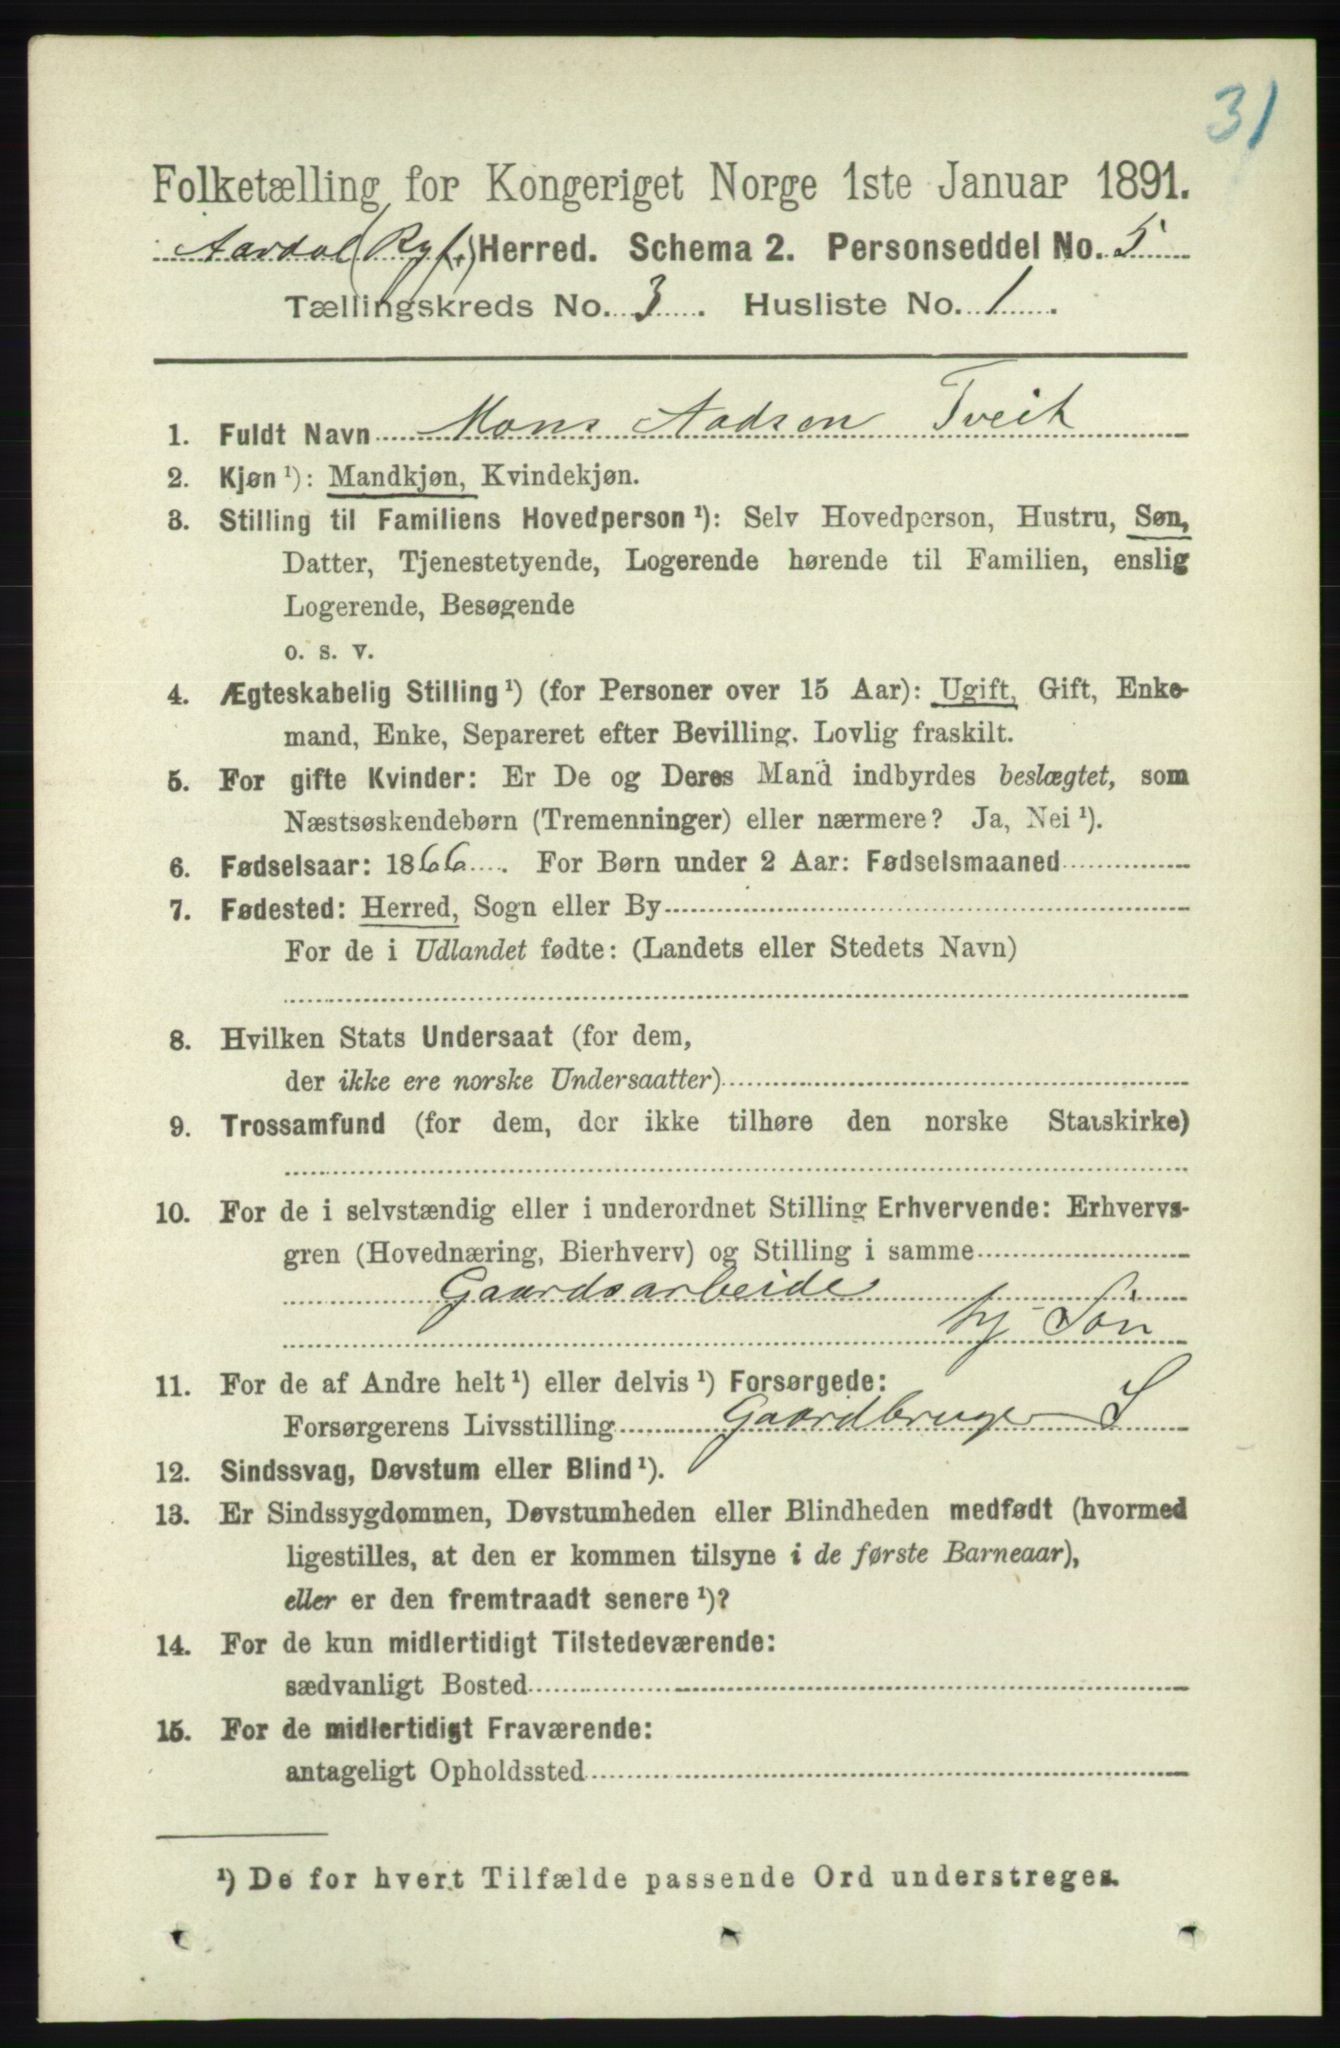 31
Folketælling for Kongeriget Norge 1ste Januar 1891.
Aardal (Ryf.) Herred. Schema 2. Personseddel No. 5
Tællingskreds No. 3. Husliste No. 1.
1. Fuldt Navn Mons Aadsen Tveit
2. Kjøn ¹): Mandkjøn, Kvindekjøn.
3. Stilling til Familiens Hovedperson ¹): Selv Hovedperson, Hustru, Søn,
Datter, Tjenestetyende, Logerende hørende til Familien, enslig
Logerende, Besøgende
o. s. v.
4. Ægteskabelig Stilling ¹) (for Personer over 15 Aar): Ugift, Gift, Enke-
mand, Enke, Separeret efter Bevilling. Lovlig fraskilt.
5. For gifte Kvinder: Er De og Deres Mand indbyrdes beslægtet, som
Næstsøskendebørn (Tremenninger) eller nærmere? Ja, Nei ¹).
6. Fødselsaar: 1866. For Børn under 2 Aar: Fødselsmaaned
7. Fødested: Herred, Sogn eller By
For de i Udlandet fødte: (Landets eller Stedets Navn)
8. Hvilken Stats Undersaat (for dem,
der ikke ere norske Undersaatter)
9. Trossamfund (for dem, der ikke tilhøre den norske Statskirke)
10. For de i selvstændig eller i underordnet Stilling Erhvervende: Erhvervs-
gren (Hovednæring, Bierhverv) og Stilling i samme
Gaardsarbeide
hj-Søn
11. For de af Andre helt ¹) eller delvis ¹) Forsørgede:
Forsørgerens Livsstilling Gaardbruger S
12. Sindssvag, Døvstum eller Blind ¹).
13. Er Sindssygdommen, Døvstumheden eller Blindheden medfødt (hvormed
ligestilles, at den er kommen tilsyne i de første Barneaar),
eller er den fremtraadt senere ¹)?
14. For de kun midlertidigt Tilstedeværende:
sædvanligt Bosted
15. For de midlertidigt Fraværende:
antageligt Opholdssted
¹) De for hvert Tilfælde passende Ord understreges.